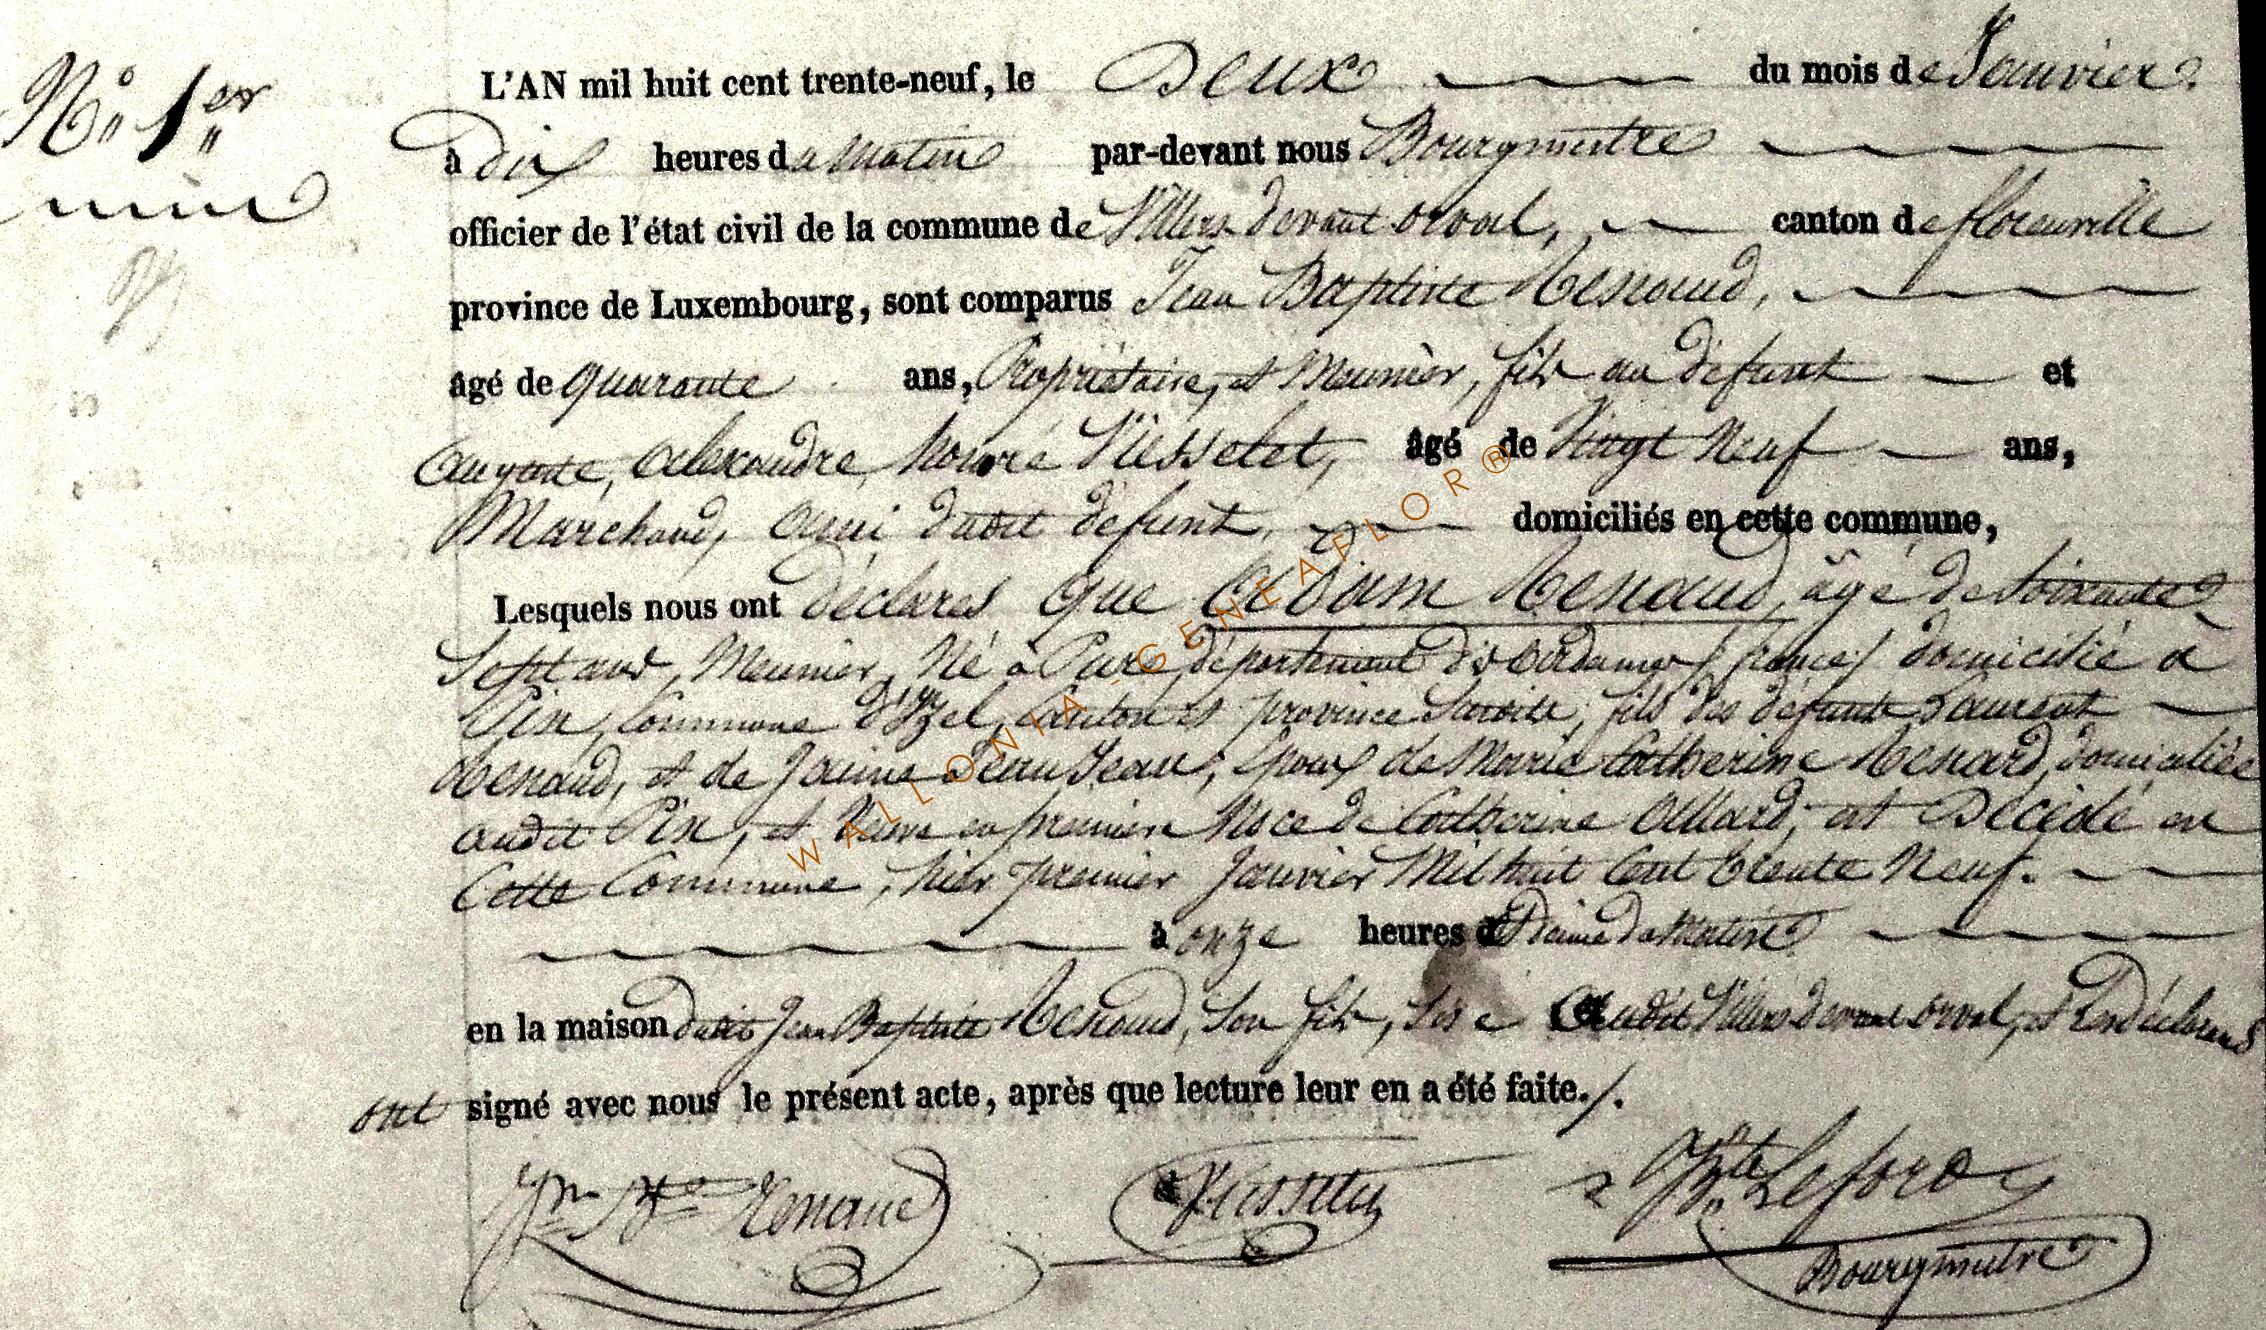 N° 1er
L'AN mil huit cent trente-neuf, le Deux du mois de Janvier
à dix heures du Matin par-devant nous Bourgmestre
officier de l'état civil de la commune de Villers devant orval, canton de florenville
province de Luxembourg, sont comparus Jean Baptiste Renaud,
âgé de quarante ans, Propriétaire, et Meunier, fils au défunt et
Auguste, Alexandre, honoré Viesselet, âgé de Vingt Neuf ans,
Marchand, ami dudit défunt, domiciliés en cette commune,
Lesquels nous ont déclarés que Adam Renaud, âgé de Soixante
Sept ans, Meunier, Né à Pure, département des Ardennes (france) domicilié à
Pin, Commune d'Izel, Canton et province susdits, fils des défunts Laurent
Renaud, et de Jeanne Jean Jean, Epoux de Marie Catherine Renard, domiciliée
audit Pin, et Veuve en premier Noce de Catherine Allard, est Décédé en
Cette Commune, hier premier Janvier Mil huit Cent trente Neuf.
à onze heures du Matin
en la maison dudit Jean Baptiste Renaud, son fils, sise Audit Villers devant orval, et Les déclarans
ont signé avec nous le présent acte, après que lecture leur en a été faite./.
Jn Bte Renaud Viesselet Jn Bte Lefore
Bourgmestre
WALLONIA - GENEAFLOR ®